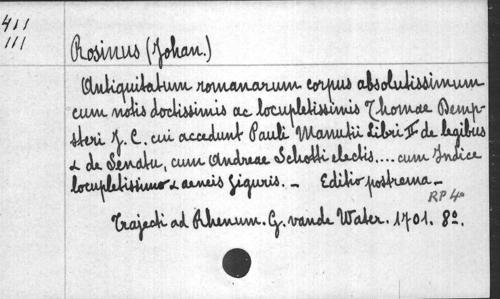 411
111
Rosinus (Johan.)
Antiquitatum romanarum corpus absolutissimum
cum notis doctissimis ac locupletissimis Thomae Demp-
steri J. C. cui accedunt Pauli Manutii libri II de legibus
& de Senatu, cum Andreae Schotti electis.... cum Indice
locupletissimo & aeneis figuris. _ Editio postrema _
RP 4o
Trajecti ad Rhenum. G. vande Water. 1701. 8o.